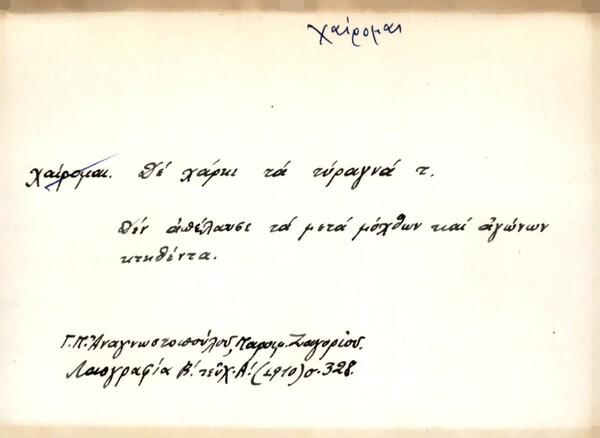 χαίρομαι
χαίρομαι. Δέ χάρκι τά τύραγνά τ.
Δέν ἀπέλαυσε τά μετά μόχθων καί ἀγώνων
κτηθέντα.
Γ. Π. Ἀναγνωστοπούλου, Παροιμ. Ζαγορίου.
Λαογραφία Β΄. τεῦχ. Α΄. (1910) σ. 328.